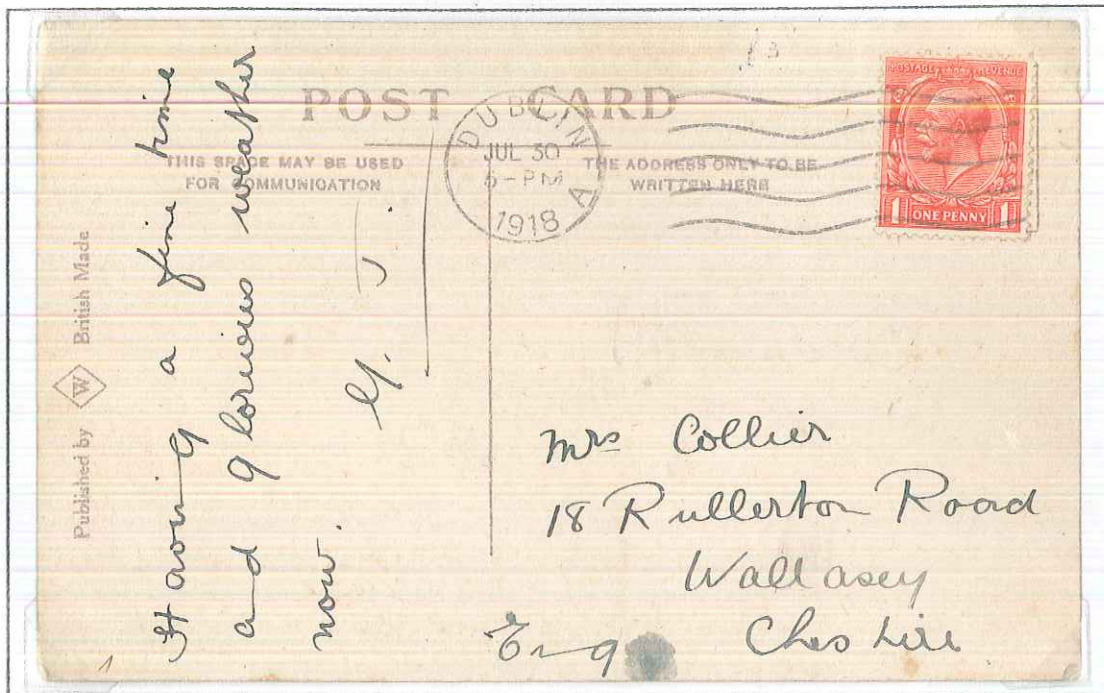 POST CARD
THIS SPACE MAY BE USED
FOR COMMUNICATION
THE ADDRESS ONLY TO BE
WRITTEN HERE
DUBLIN
JUL 30
5-PM
1918
A
POSTAGE REVENUE
1 ONE PENNY 1
Published by W British Made
Having a fine time
and glorious weather
now.
Mrs Collier
18 Rullerton Road
Wallasey
Cheshire
Eng